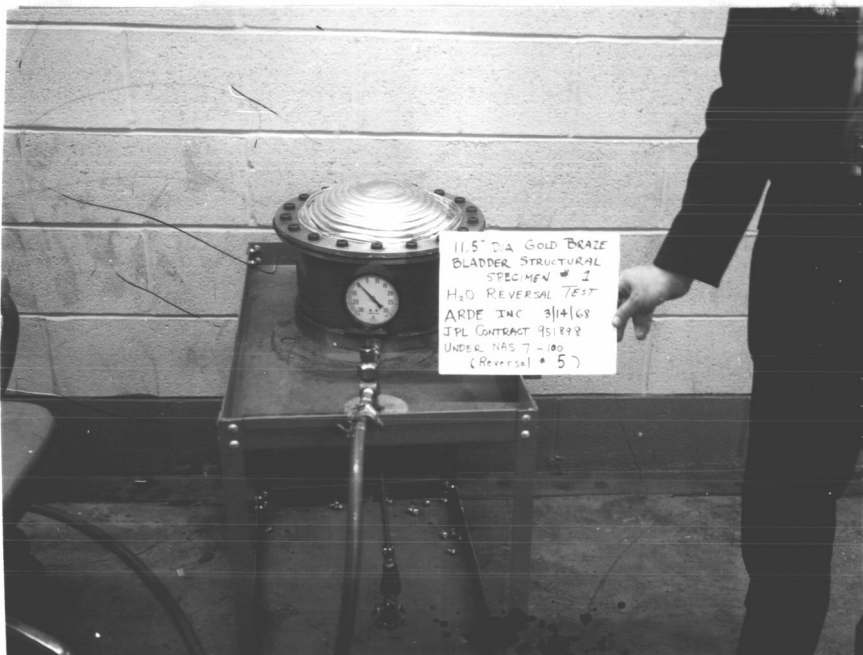 11.5" DIA GOLD BRAZE
BLADDER STRUCTURAL
SPECIMEN # 1
H₂O REVERSAL TEST
ARDE INC 3/14/68
JPL CONTRACT 951898
UNDER NAS 7-100
(Reversal # 5)